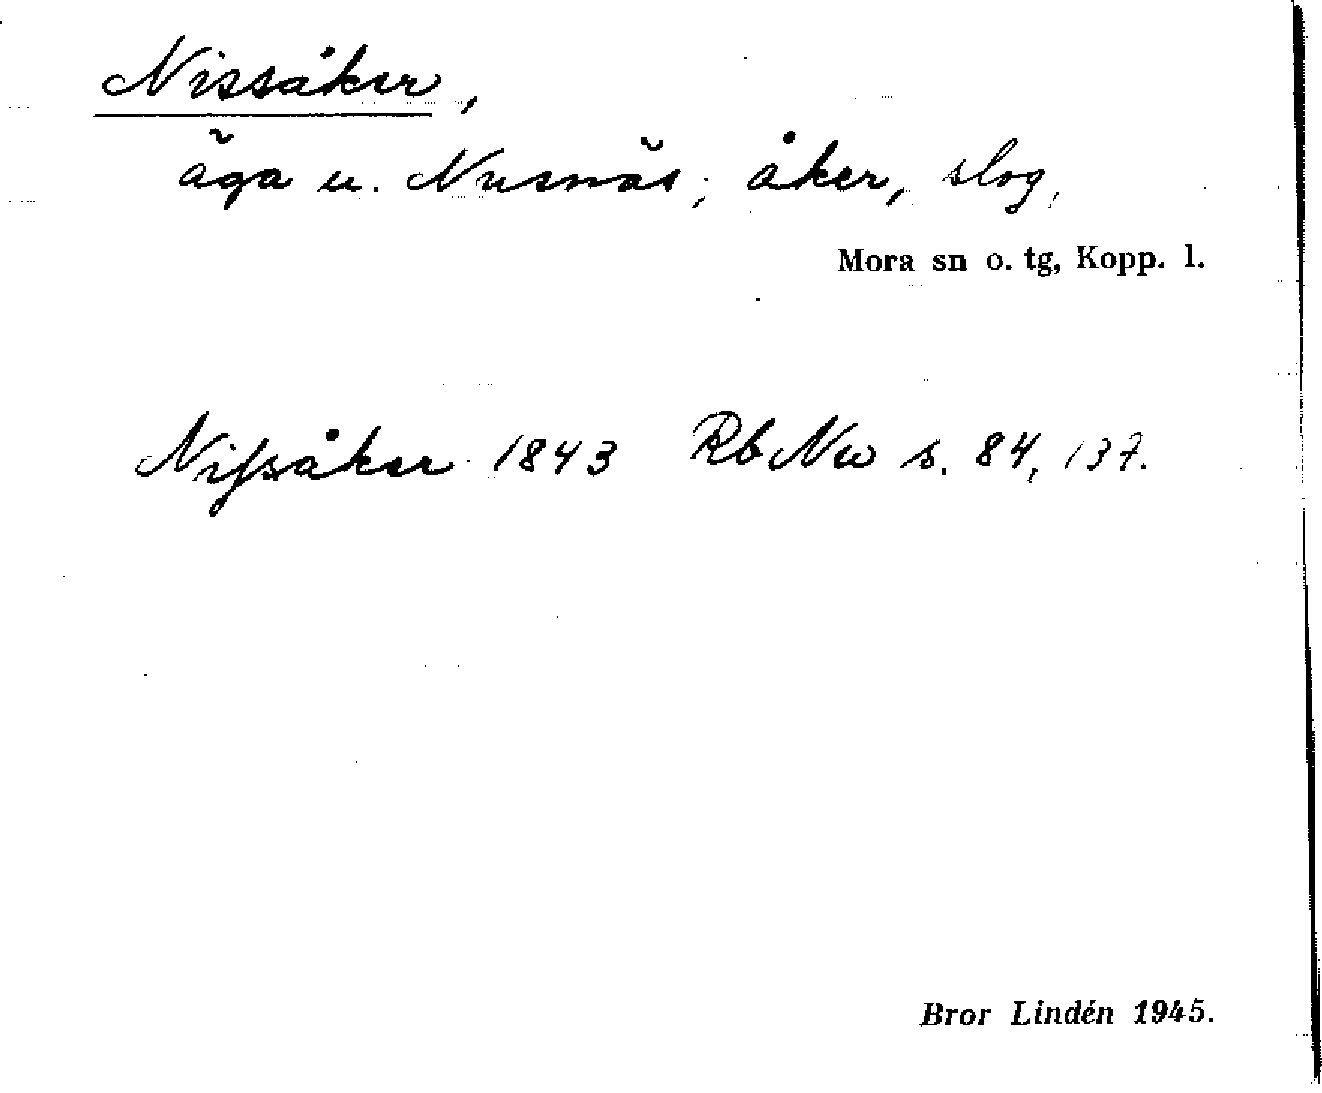 Nissåker,
äga u. Nusnäs; åker, slog,
Mora sn o. tg, Kopp. l.
Nifsåker 1843 Rb Nw s. 84, 137.
Bror Lindén 1945.